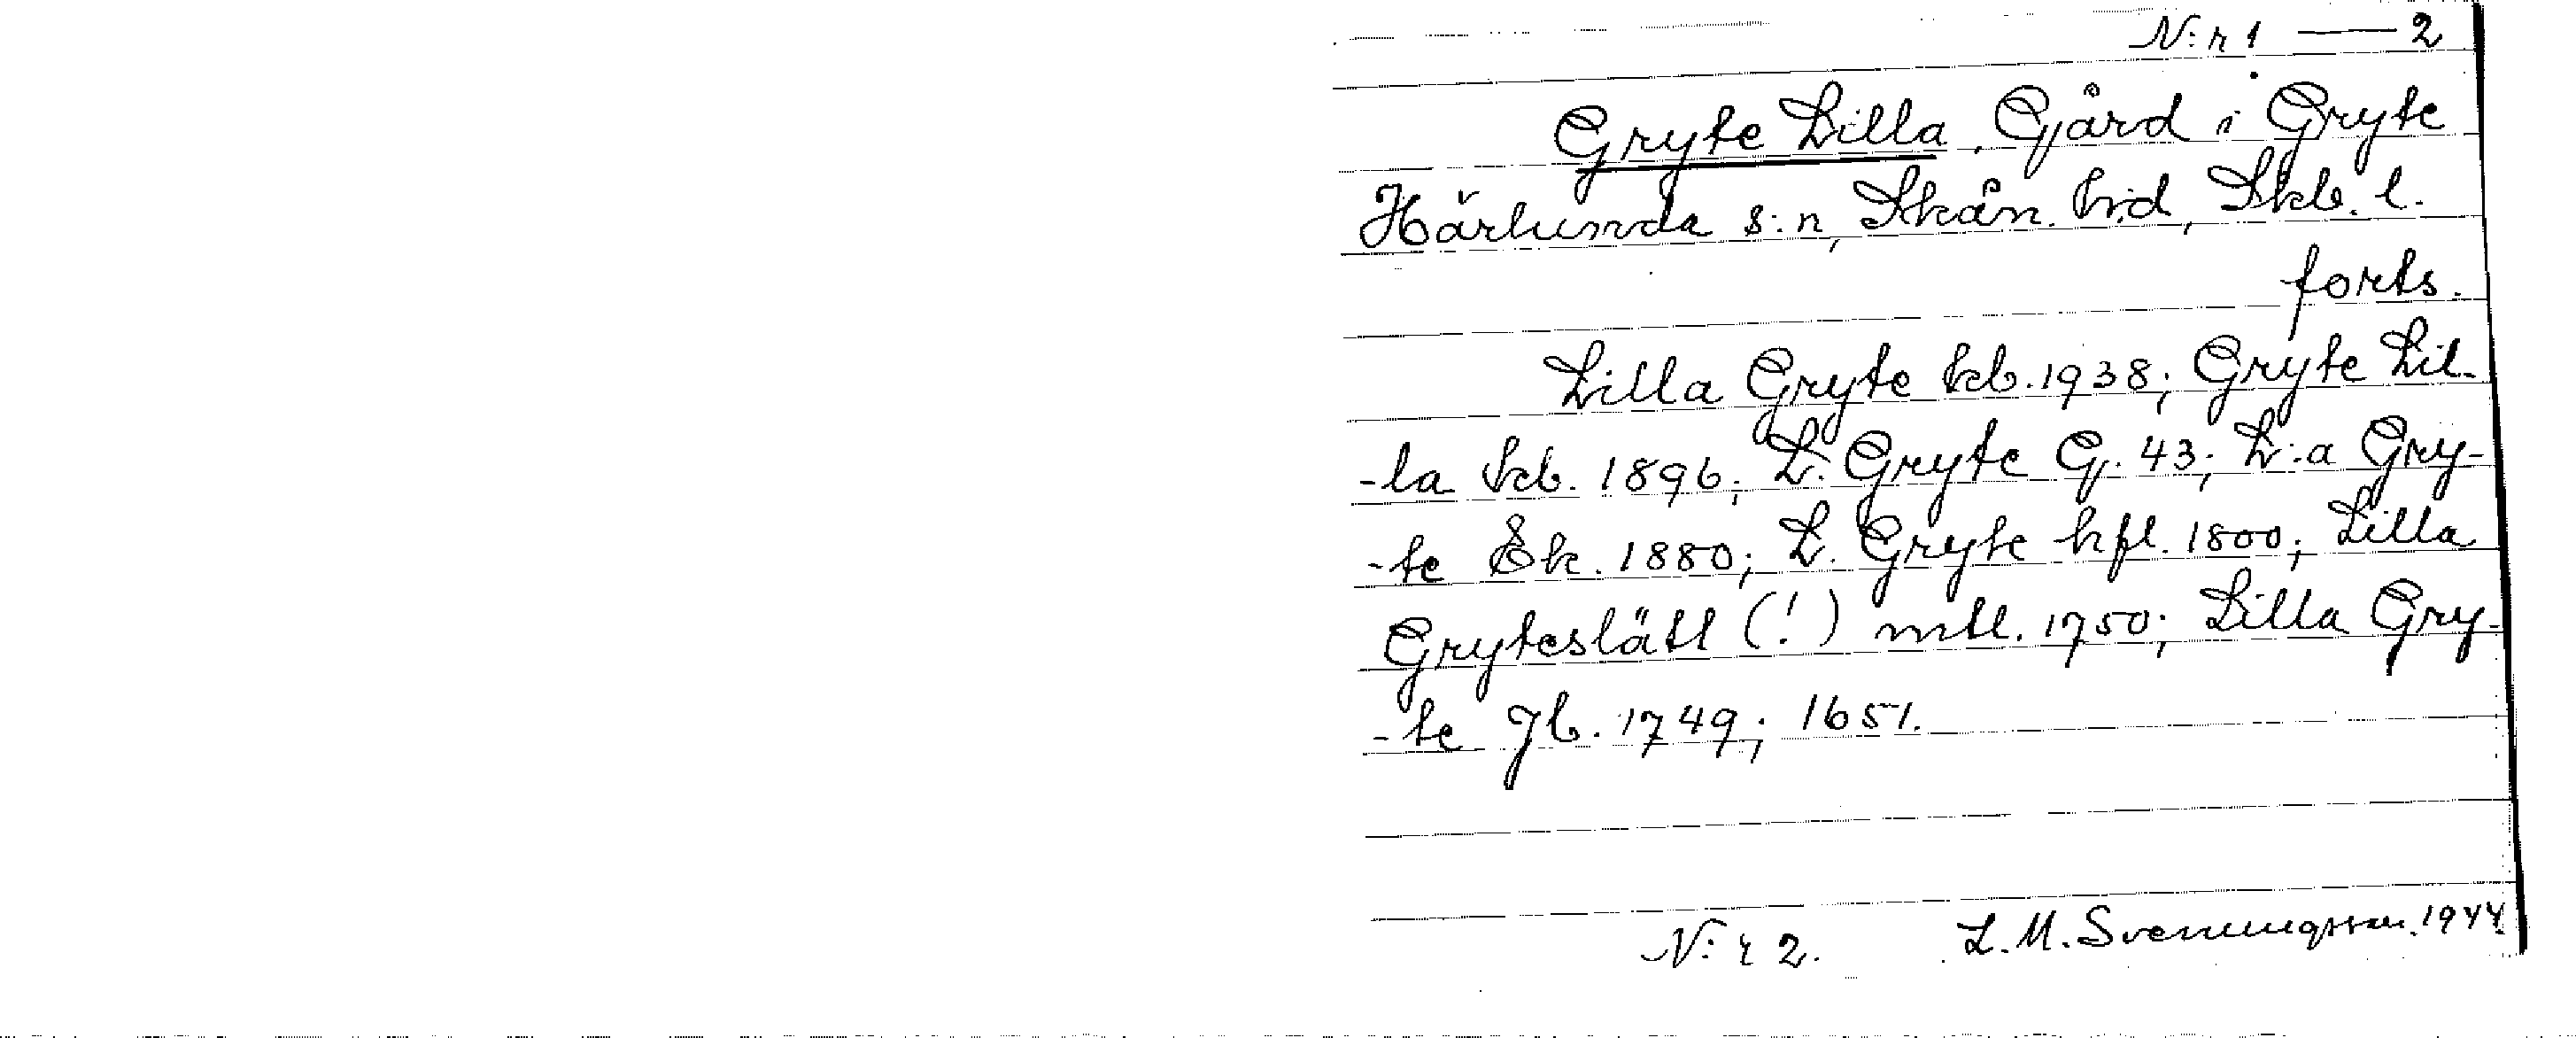 N:r 1 — 2
Gryte Lilla. Gård i Gryte
Härlunda s:n, Skån. h:d, Skb. l.
forts.
Lilla Gryte kb. 1938; Gryte Lil-
-la kb. 1896; L. Gryte G. 43; L:a Gry-
-te Ek. 1880; L. Gryte hfl. 1800; Lilla
Gryteslätt (!) mtl. 1750; Lilla Gry-
-te Jb. 1749; 1651.
N:r 2. L. M. Svenungsson. 1944.